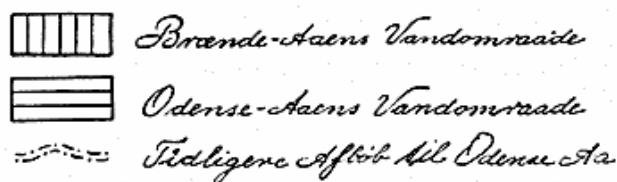 Brænde-Aaens Vandomraade
Odense-Aaens Vandomraade
Tidligere Afløb til Odense Aa